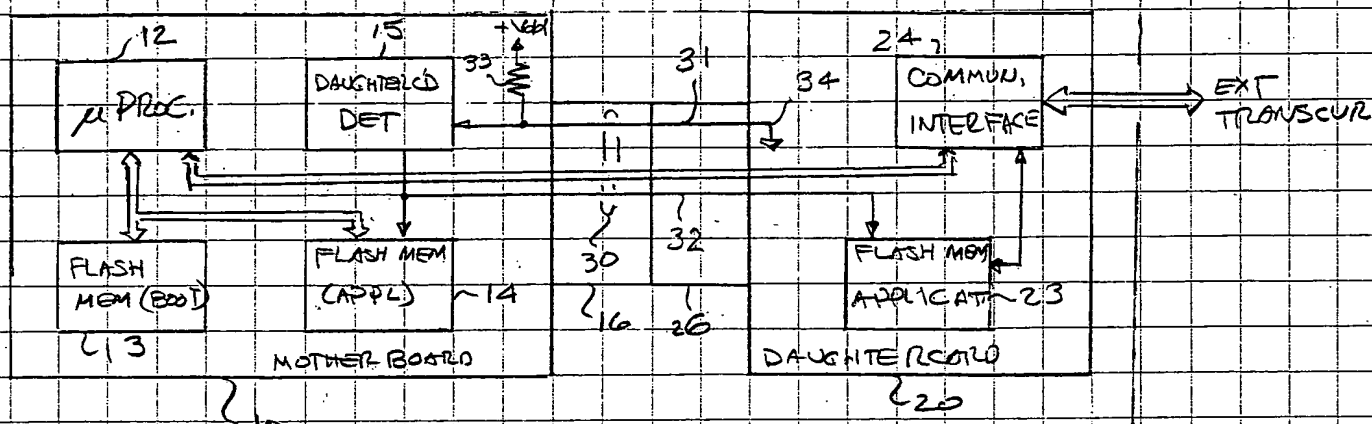 12
15
+Vdd
33
31
34
24
μ PROC.
DAUGHTERC'D
DET
COMMUN.
INTERFACE
EXT
TRANSCUR
FLASH
MEM (BOOT)
13
FLASH MEM
(APPL)
14
30
32
16
26
FLASH MEM
APPLICAT
23
MOTHER BOARD
DAUGHTERCARD
20